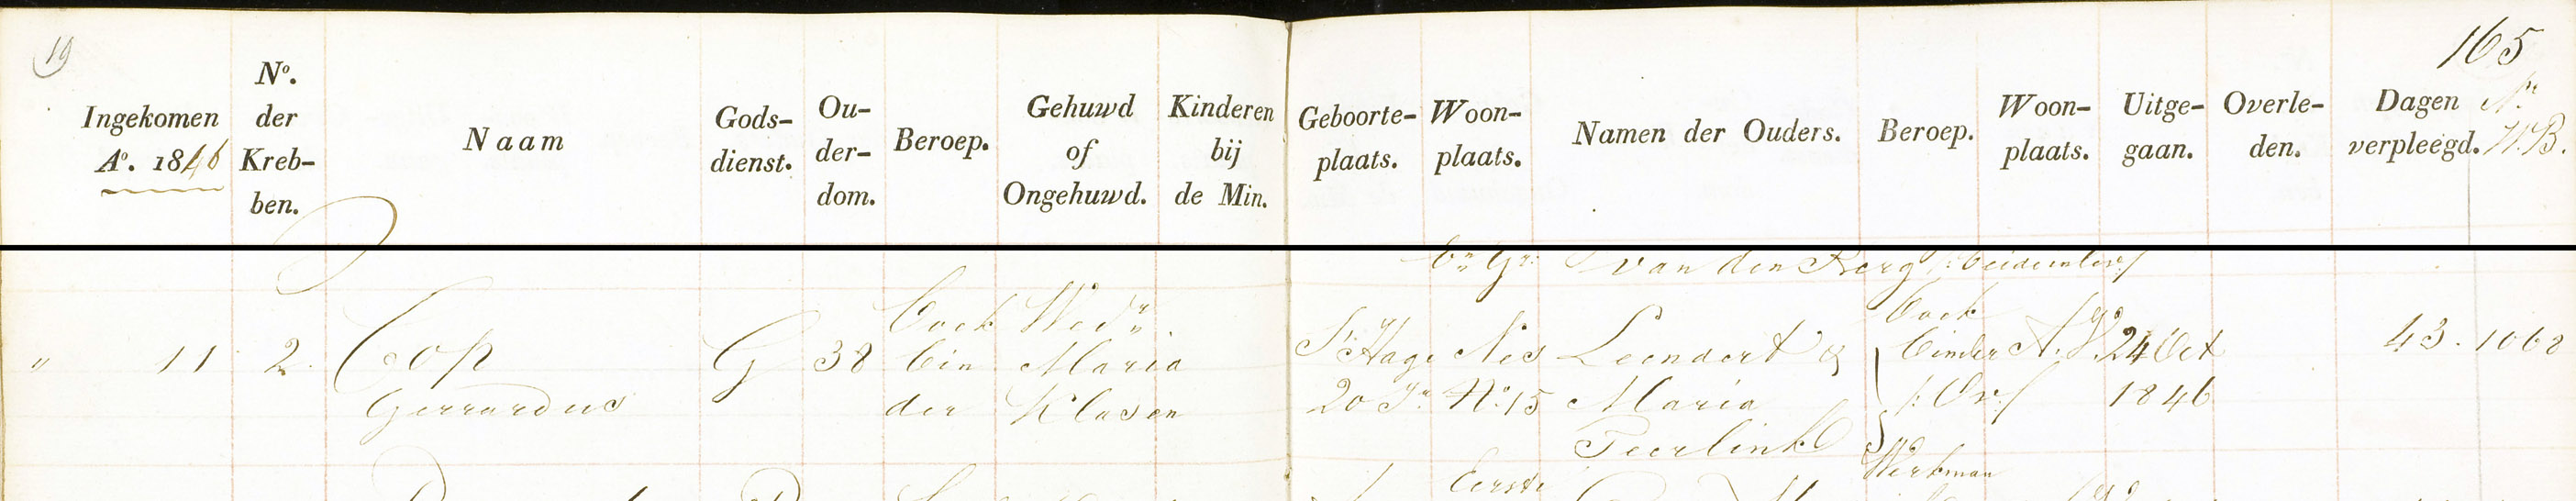 19
165
Ingekomen
Aº. 1846
Nº.
der
Kreb-
ben.
Naam
Gods-
dienst.
Ou-
der-
dom.
Beroep.
Gehuwd
of
Ongehuwd.
Kinderen
bij
de Min.
Geboorte-
plaats.
Woon-
plaats.
Namen der Ouders.
Beroep.
Woon-
plaats.
Uitge-
gaan.
Overle-
den.
Dagen
verpleegd.
Nr
W.B.
van den Berg
" 11
2.
Cop
Gerrardus
G
38
Boek
bin
der
Wedr.
Maria
Klasen
S'Hage
20 Jr
Nes
Nº 15
Leendert &
Maria
Peerlink
Boek
binder
24 Oct
1846
43.
1068
Eerste
Werkman